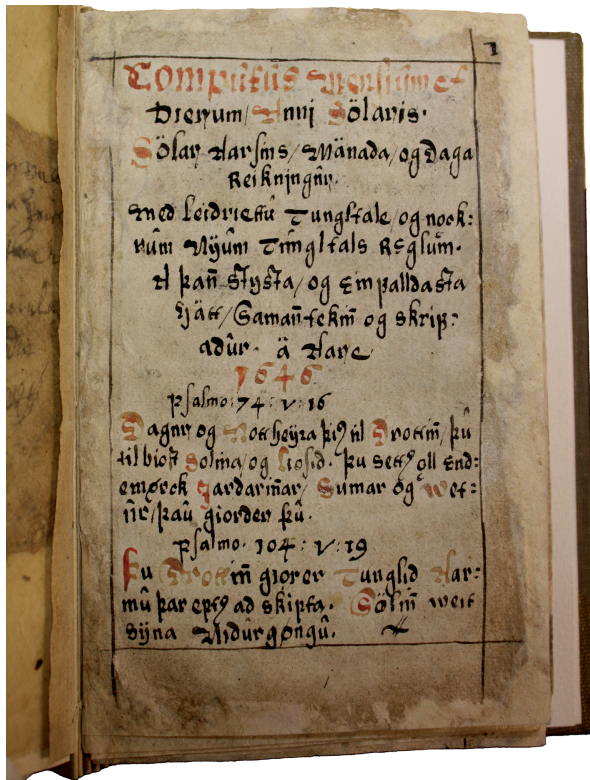 1
Computus Mensium et
Dierum/ Anni Sólaris.
Sólar Aarsins/ Mánada/ og Daga
Reikningur.
Med leidriettū Tungltale/ og nock:
rūm Nÿūm Tungltals Reglum.
A þan̄ stÿsta/ og Einfalldasta
Hátt/ Saman̄tekin̄ og skrif:
adūr. ä Aare
1646
Psalmo: 74: v: 16
Dagur og Nott heÿra þier til Drottin̄/ þū
til biost Solina/ og liosid. þu setter øll End:
emørck Jardarin̄ar/ Sumar og Vet:
ūr/ þau giorder þū.
Psalmo. 104: V: 19
Þu Drottin̄ giorer Tunglid Aar:
mū þar epter ad skipta. Sólin̄ weit
sÿna Nidūrgøngū.